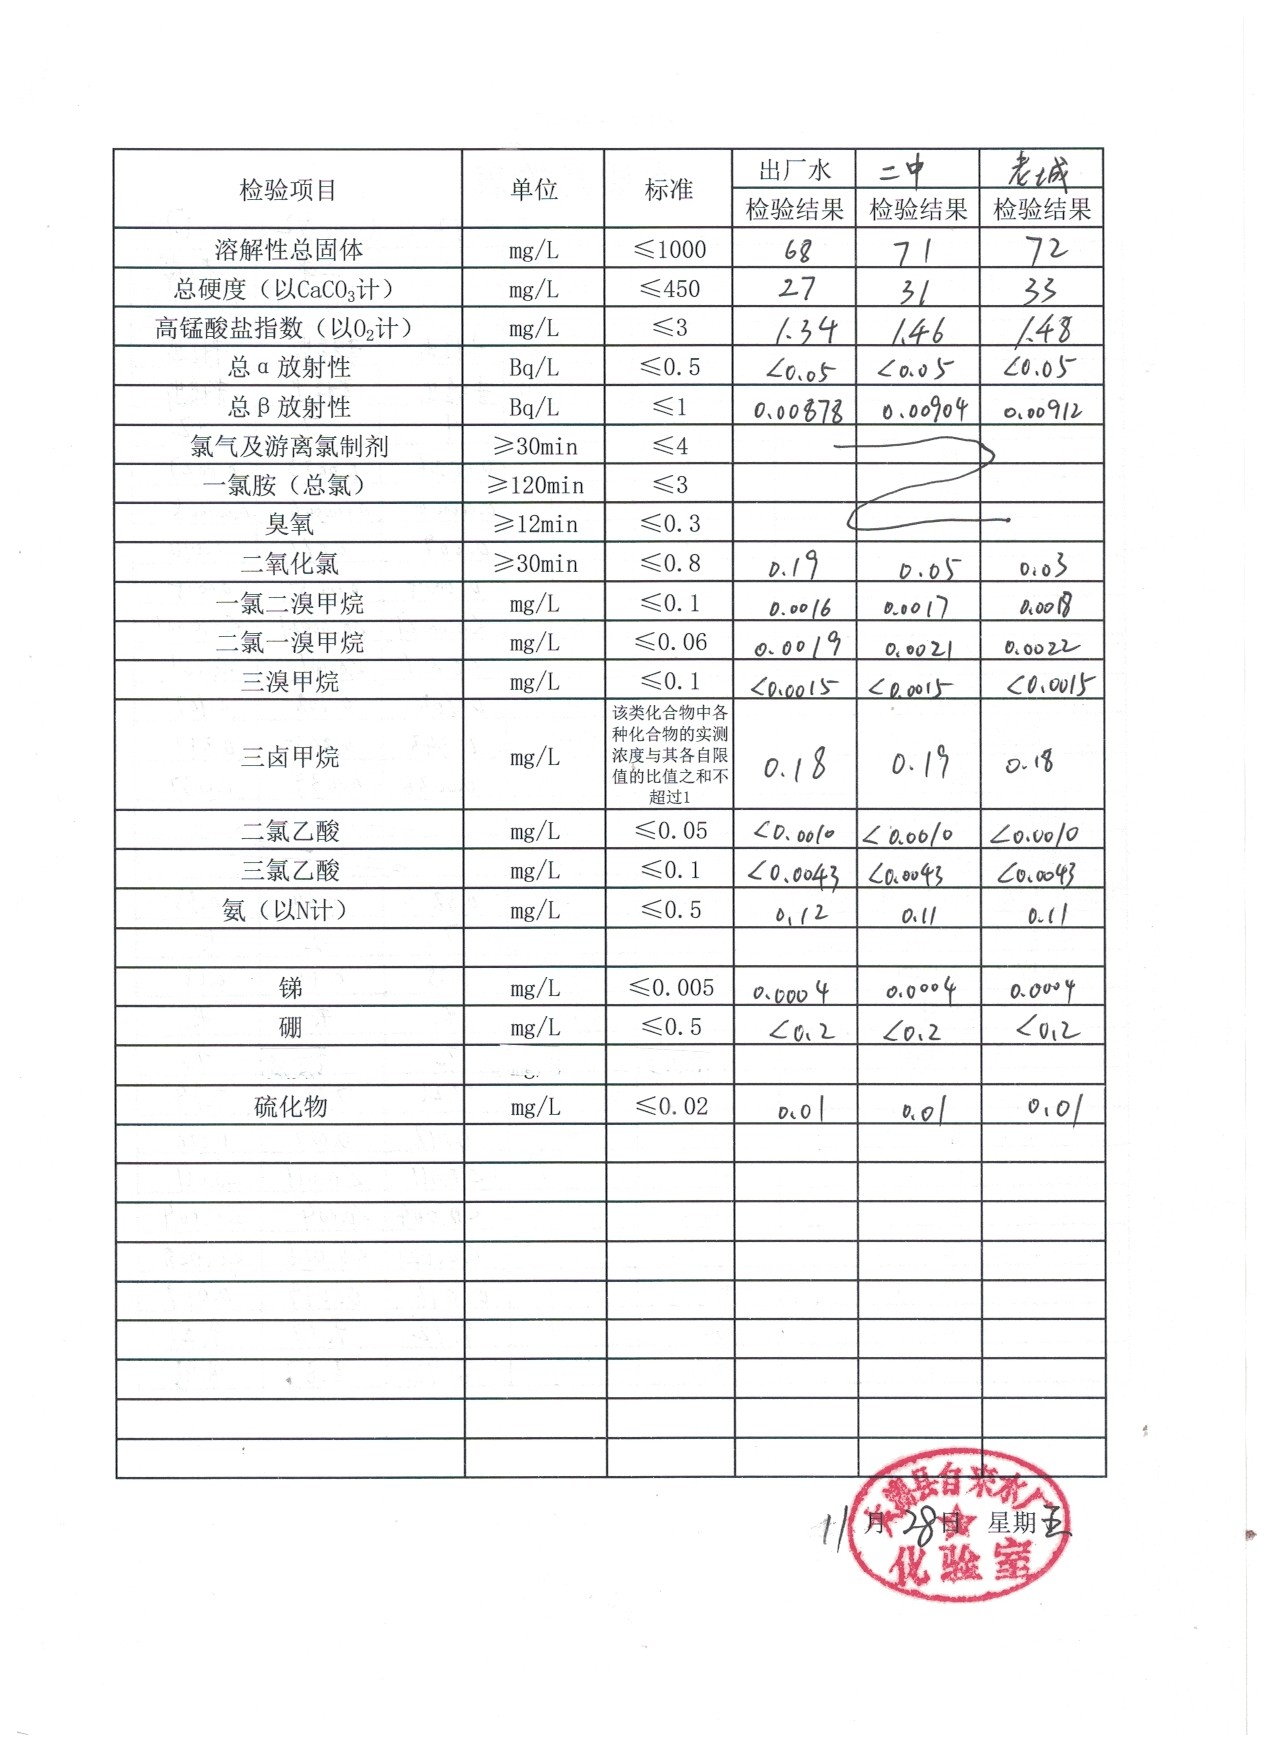 检验项目 单位 标准 出厂水 二中 老城
检验结果 检验结果 检验结果
溶解性总固体 mg/L ≤1000 68 71 72
总硬度（以CaCO₃计） mg/L ≤450 27 31 33
高锰酸盐指数（以O₂计） mg/L ≤3 1.34 1.46 1.48
总α放射性 Bq/L ≤0.5 <0.05 <0.05 <0.05
总β放射性 Bq/L ≤1 0.00878 0.00904 0.00912
氯气及游离氯制剂 ≥30min ≤4
一氯胺（总氯） ≥120min ≤3
臭氧 ≥12min ≤0.3
二氧化氯 ≥30min ≤0.8 0.19 0.05 0.03
一氯二溴甲烷 mg/L ≤0.1 0.0016 0.0017 0.0018
二氯一溴甲烷 mg/L ≤0.06 0.0019 0.0021 0.0022
三溴甲烷 mg/L ≤0.1 <0.0015 <0.0015 <0.0015
三卤甲烷 mg/L 该类化合物中各种化合物的实测浓度与其各自限值的比值之和不超过1 0.18 0.19 0.18
二氯乙酸 mg/L ≤0.05 <0.0010 <0.0010 <0.0010
三氯乙酸 mg/L ≤0.1 <0.0043 <0.0043 <0.0043
氨（以N计） mg/L ≤0.5 0.12 0.11 0.11
锑 mg/L ≤0.005 0.0004 0.0004 0.0004
硼 mg/L ≤0.5 <0.2 <0.2 <0.2
硫化物 mg/L ≤0.02 0.01 0.01 0.01
县自来水厂
11月28日 星期五
化验室